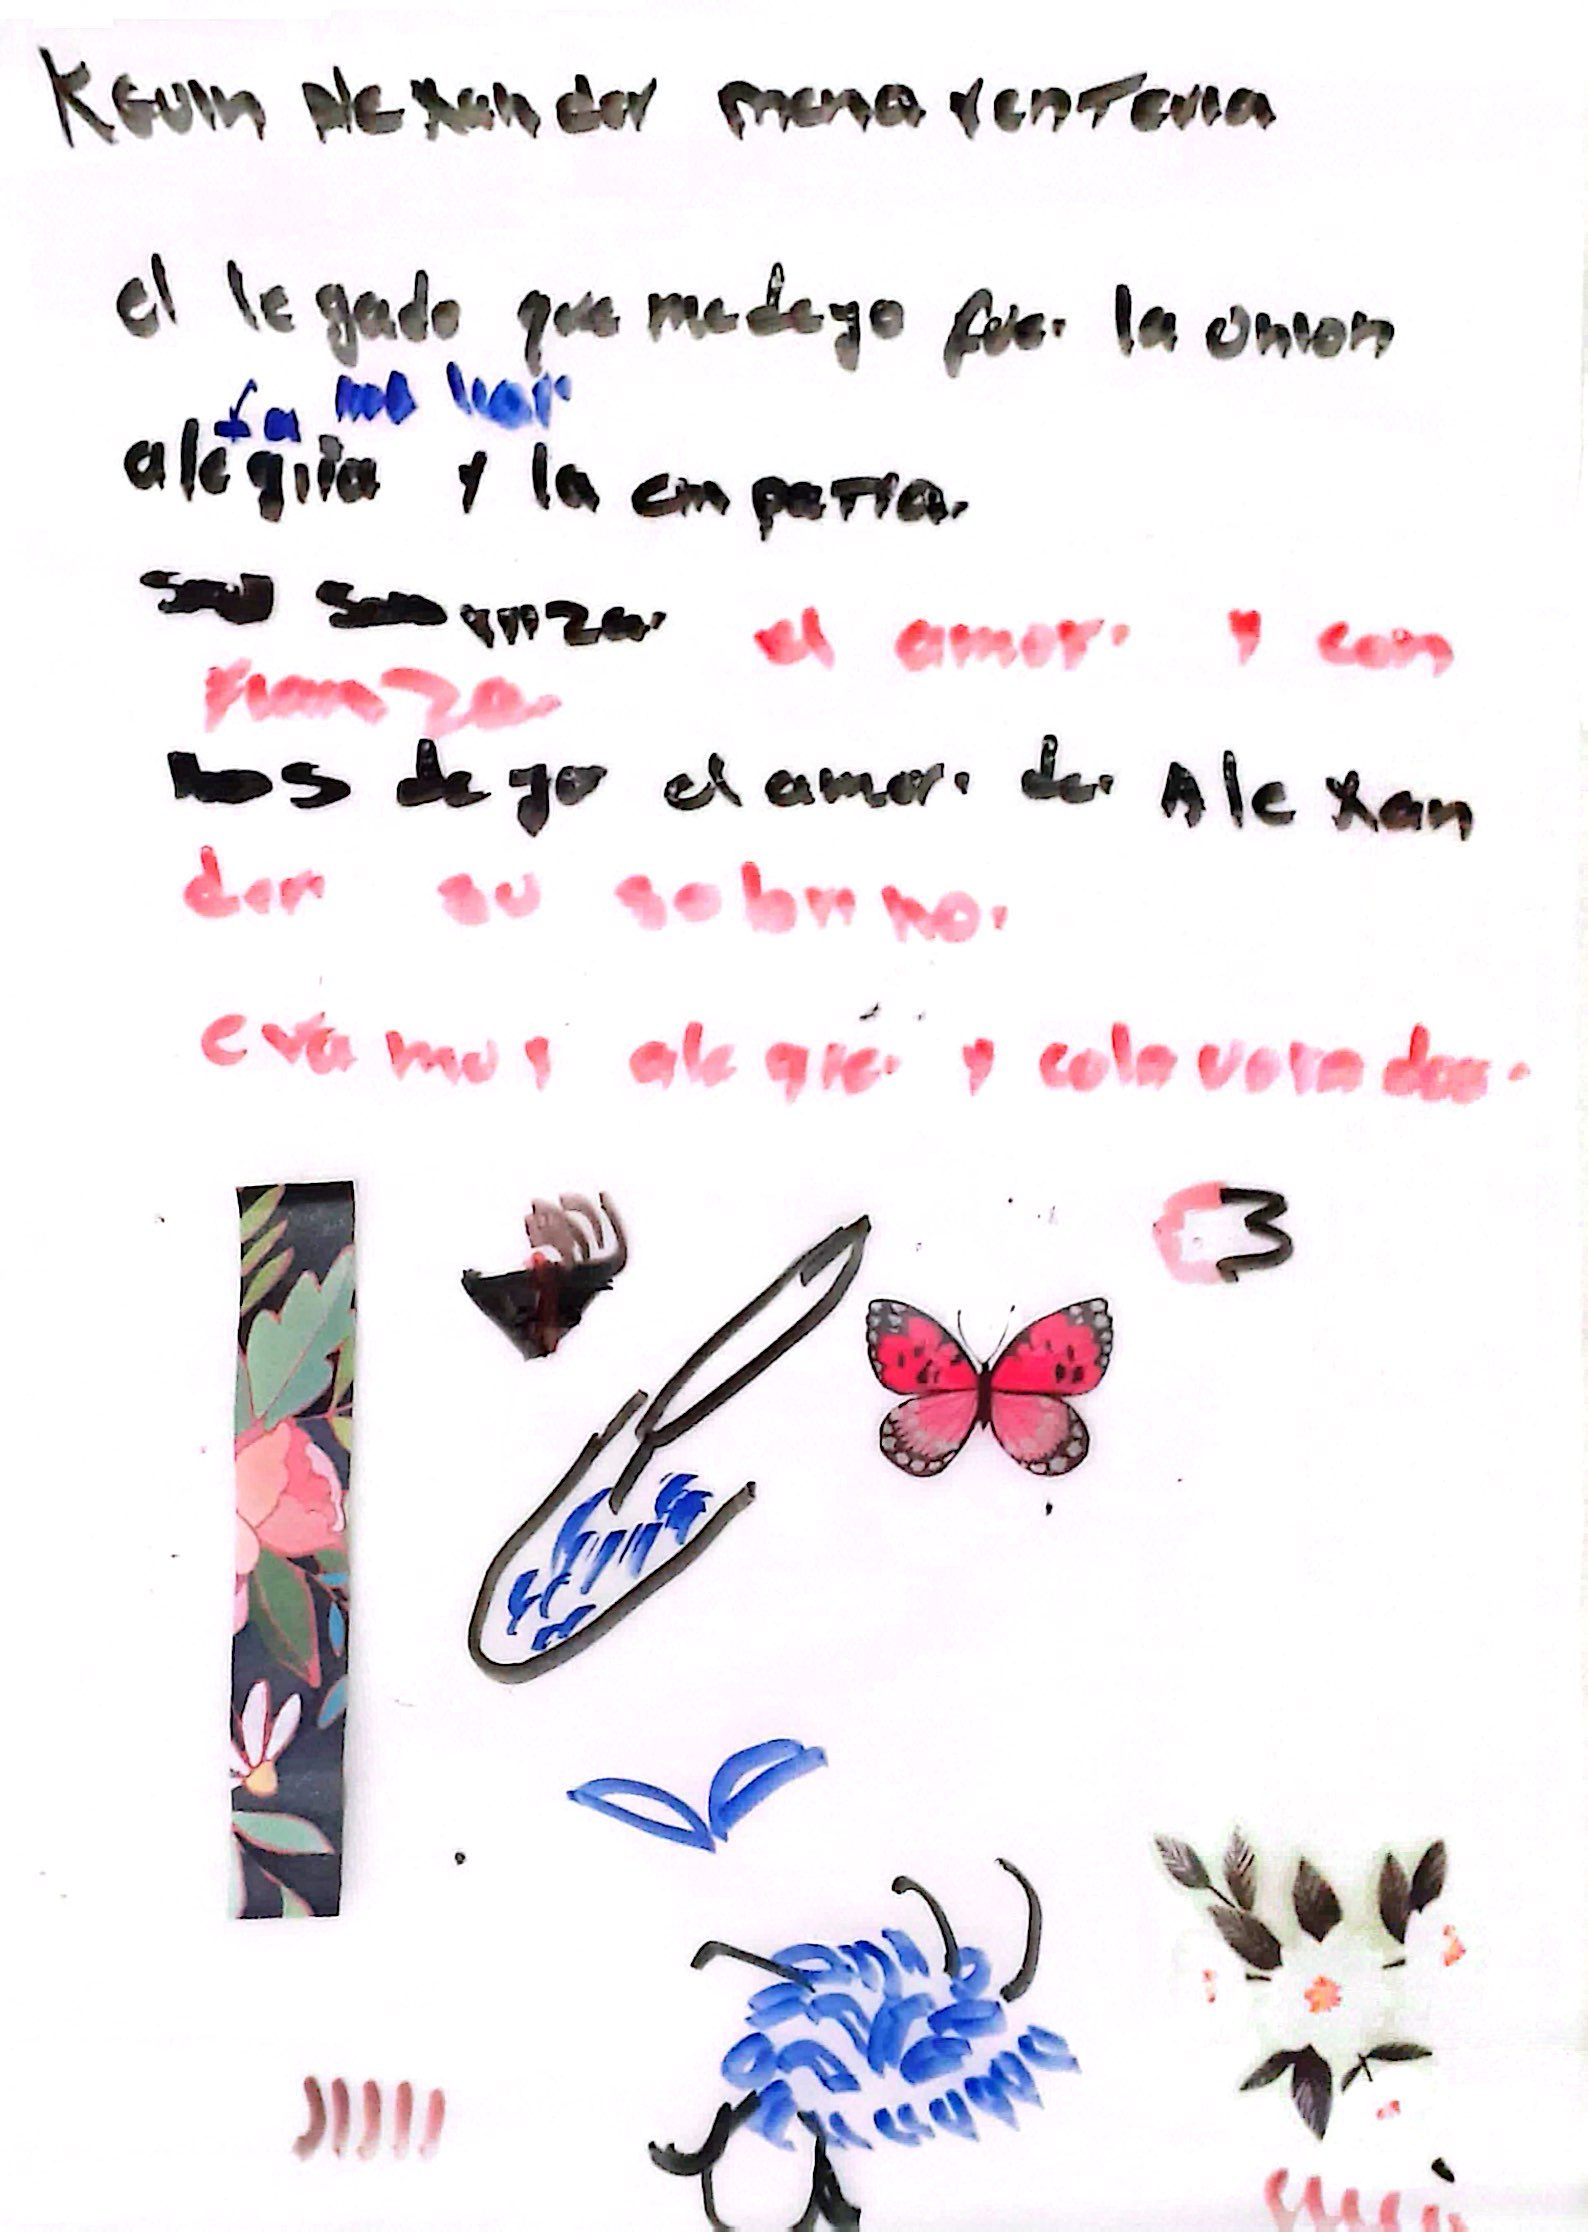 Kevin Alexander mena renteria
el legado que me dejo fue la union
familiar
alegria y la empatia.
el amor y con
fianza
nos dejo el amor de Alexan
der su sobrino.
eramos alegre y colavorador.